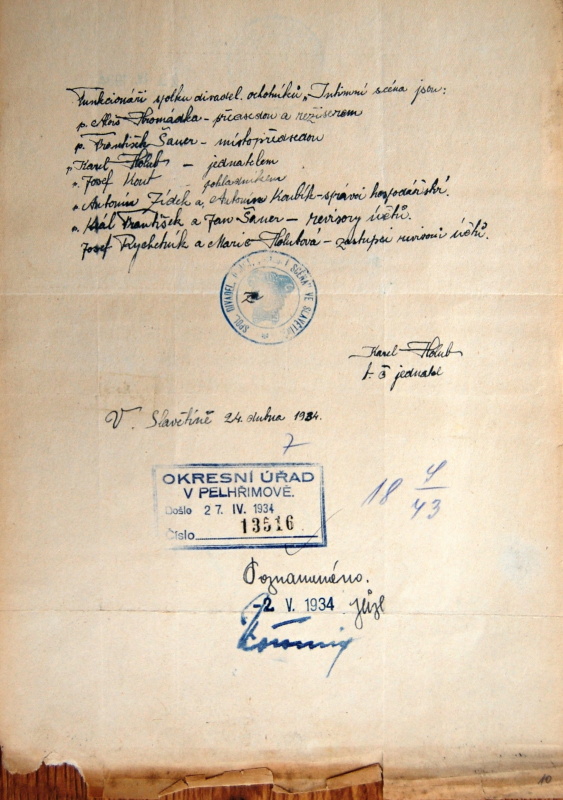 Funkcionáři spolku divadel. ochotníků „Intimní scéna jsou:
p. Alois Hromádka – předsedou a režiserem
p. František Šauer – místopředsedou
„ Karel Holub – jednatelem
„ Josef Kout – pokladníkem
„ Antonín Žídek a „ Antonín Koubík – správci hospodářství.
„ Král František a Jan Šauer – revisory účtů.
Josef Rychetník a Marie Holubová – zástupci revisorů účtů.
SPOL. DIVADEL. SCÉNA" VE SLAVĚTÍNĚ
Karel Holub
t. č jednatel
V Slavětíně 24. dubna 1934.
7
OKRESNÍ ÚŘAD
V PELHŘIMOVĚ.
Došlo 27. IV. 1934
Číslo 13516
18 4/43
Poznamenáno.
-2. V. 1934
10